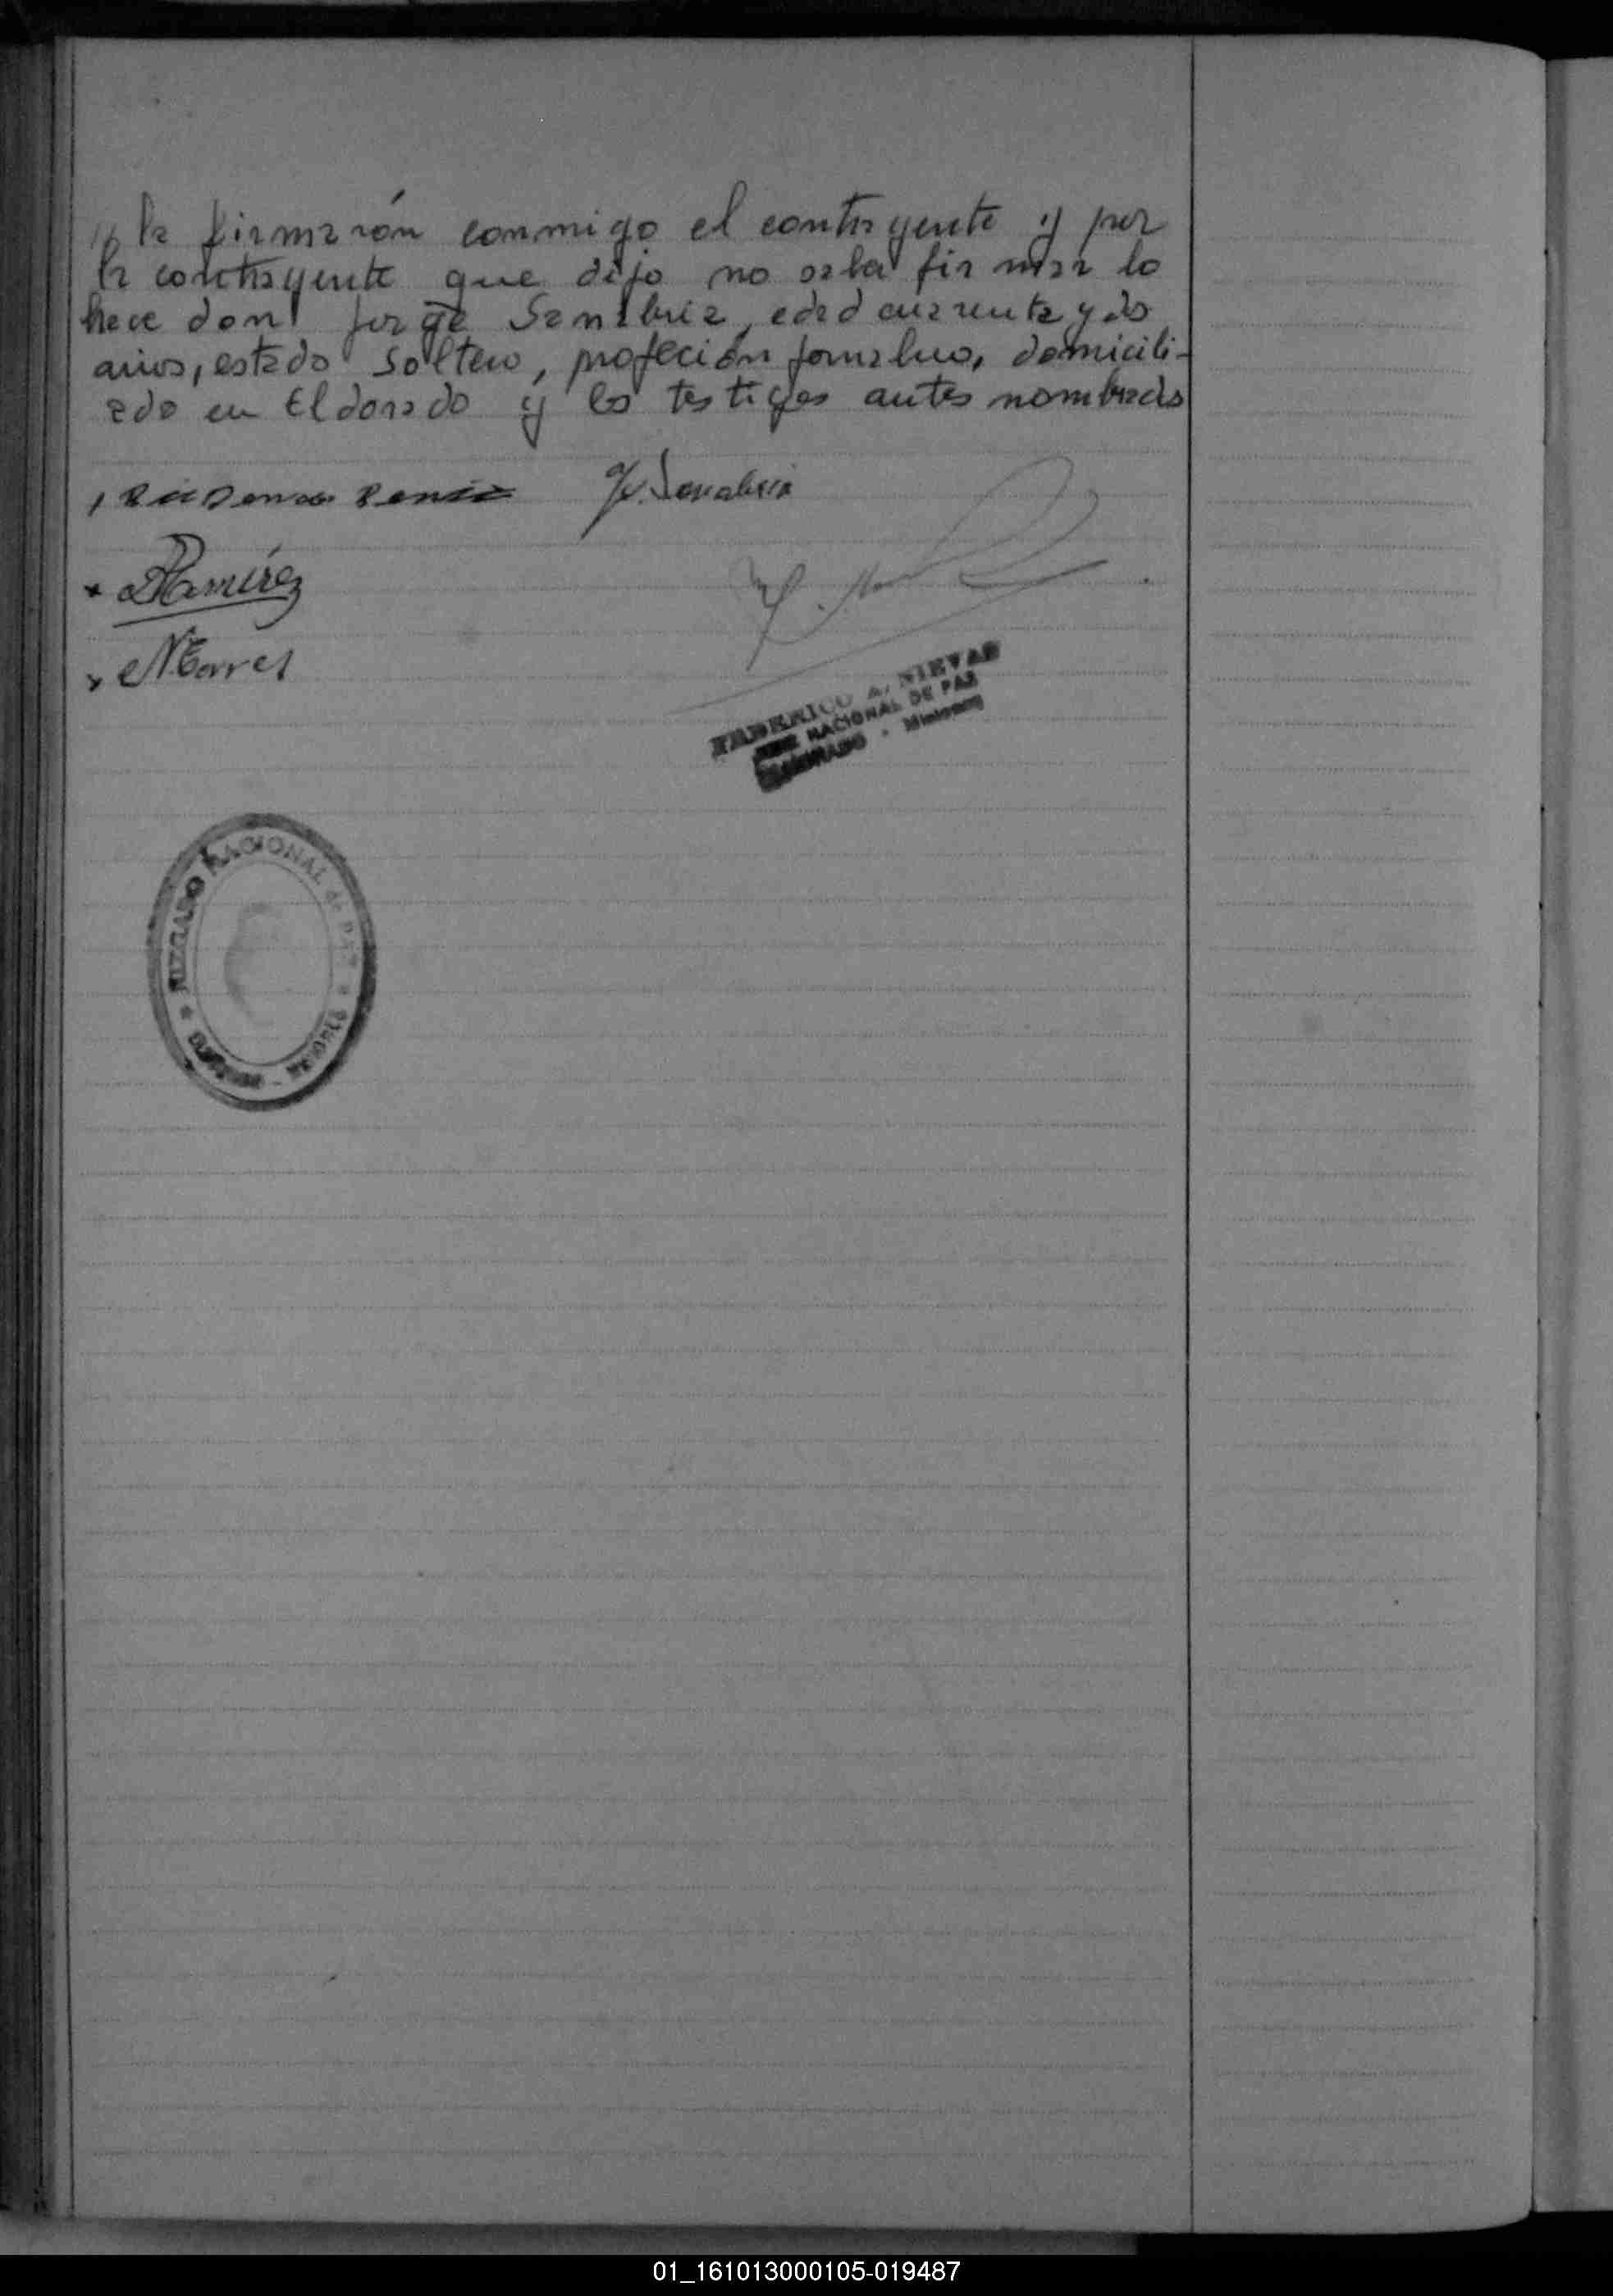 // la firmarón conmigo el contrayente y por
la contrayente que dijo no saber firmar lo
hace don Jorge Sanabria, edad cuarenta y dos
años, estado soltero, profeción jornalero, domicili-
ado en Eldorado y los testigos antes nombrados
J. Sanabria
Ramírez
N Torres
FEDERICO A. NIEVAS
JUEZ NACIONAL DE PAZ
ELDORADO - Misiones
JUZGADO NACIONAL de PAZ * ELDORADO - MISIONES *
01_161013000105-019487